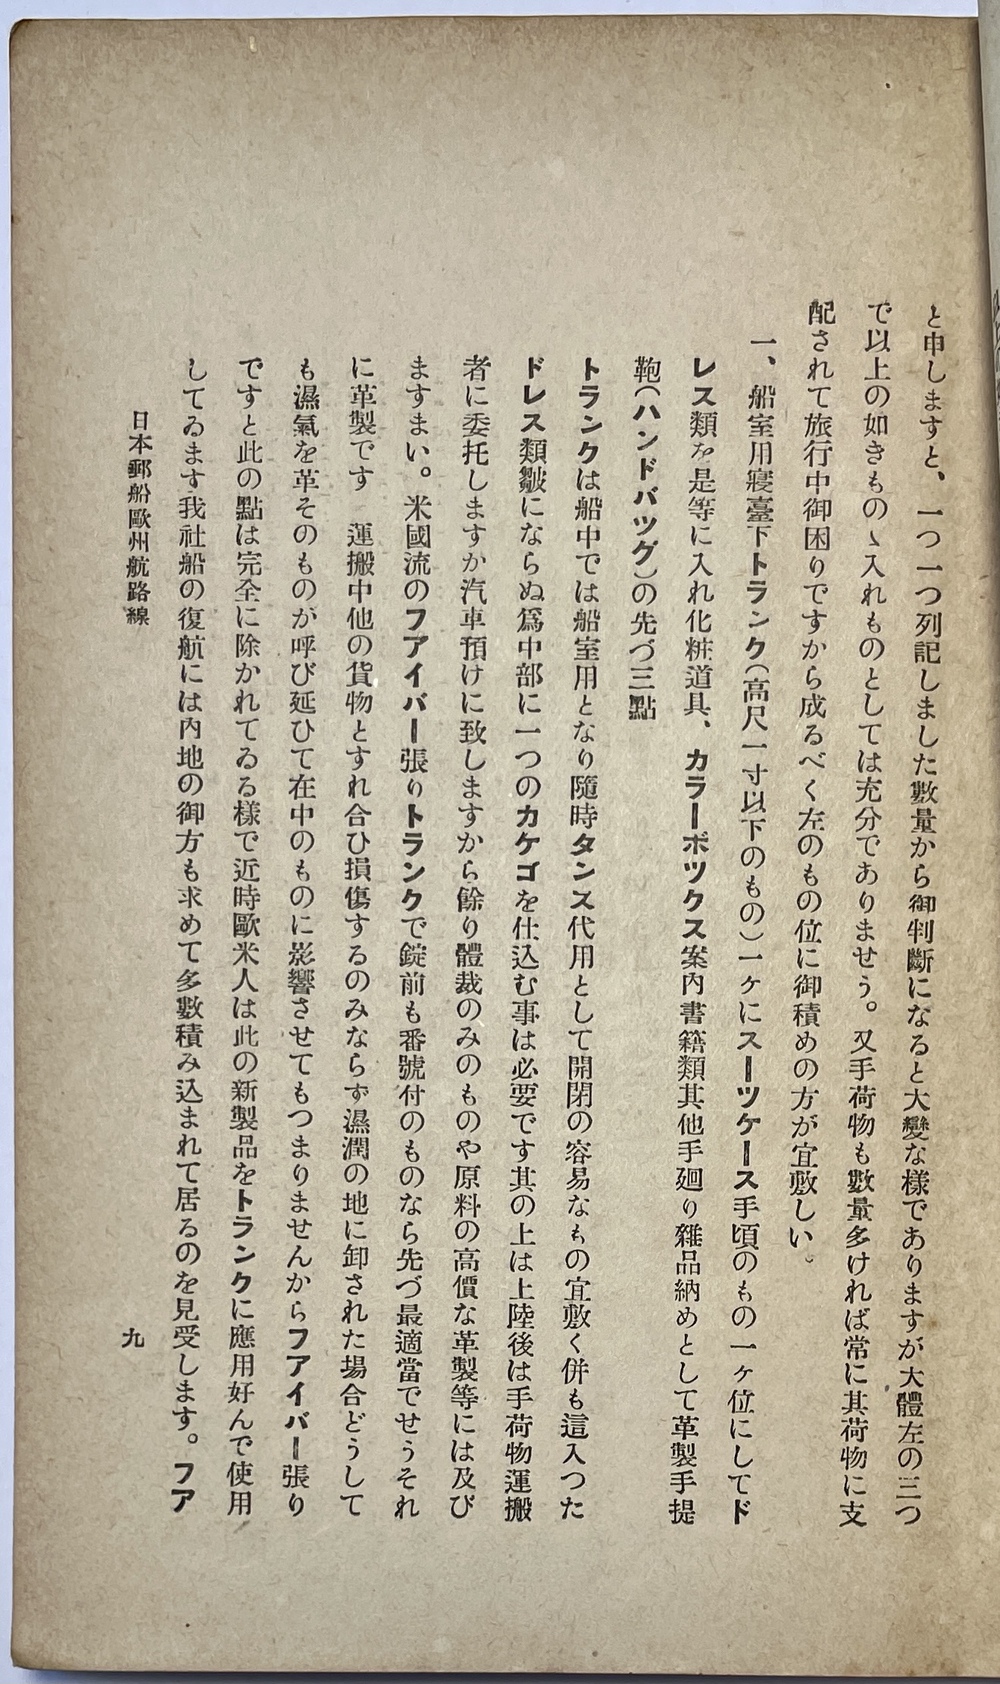 と申しますと、一つ一つ列記しました數量から御判斷になると大變な樣でありますが大體左の三つ
で以上の如きものゝ入れものとしては充分でありませう。又手荷物も數量多ければ常に其荷物に支
配されて旅行中御困りですから成るべく左のもの位に御積めの方が宜敷しい。
一、船室用寢臺下トランク（高尺一寸以下のもの）一ケにスーツケース手頃のもの一ヶ位にしてド
レス類を是等に入れ化粧道具、カラーボツクス案內書籍類其他手廻り雜品納めとして革製手提
鞄（ハンドバツグ）の先づ三點
トランクは船中では船室用となり隨時タンス代用として開閉の容易なもの宜敷く併も這入つた
ドレス類皺にならぬ爲中部に一つのカケゴを仕込む事は必要です其の上は上陸後は手荷物運搬
者に委托しますか汽車預けに致しますから餘り體裁のみのものや原料の高價な革製等には及び
ますまい。米國流のフアイバー張りトランクで錠前も番號付のものなら先づ最適當でせうそれ
に革製です　運搬中他の貨物とすれ合ひ損傷するのみならず濕潤の地に卸された場合どうして
も濕氣を革そのものが呼び延ひて在中のものに影響させてもつまりませんからフアイバー張り
ですと此の點は完全に除かれてゐる樣で近時歐米人は此の新製品をトランクに應用好んで使用
してゐます我社船の復航には內地の御方も求めて多數積み込まれて居るのを見受します。フア
日本郵船歐州航路線
九